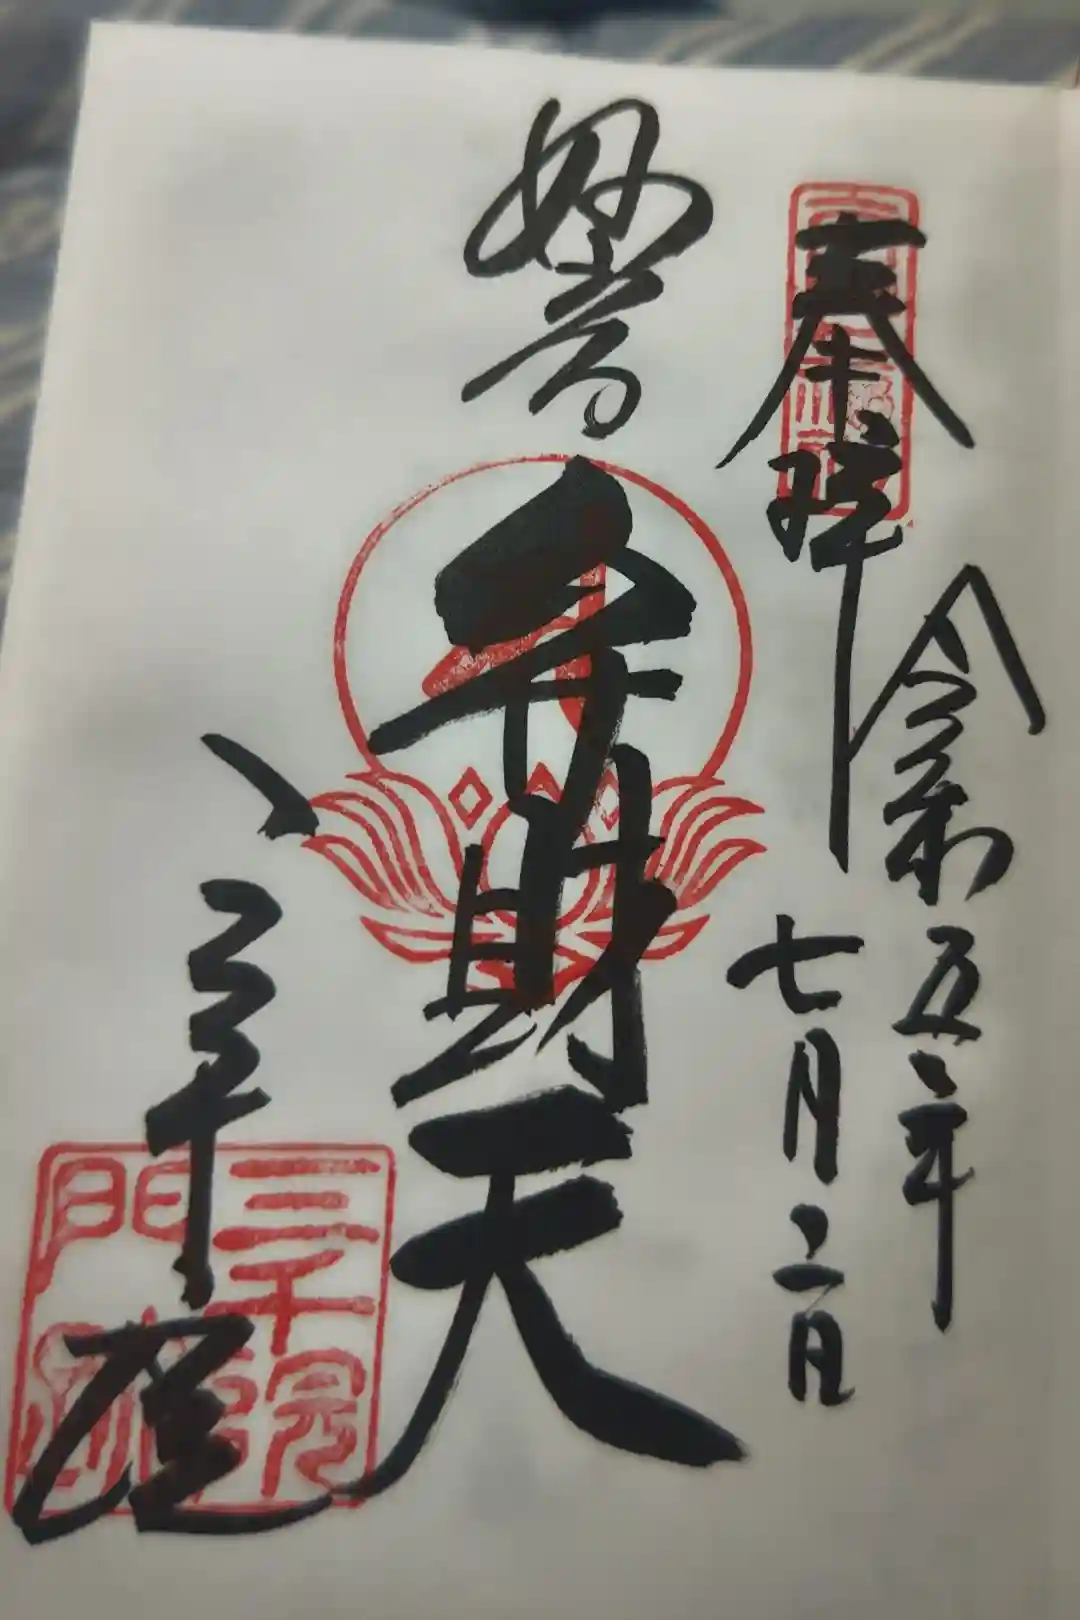 奉拝
令和五年
七月三日
妙音
弁財天
三千院
三千院
門跡